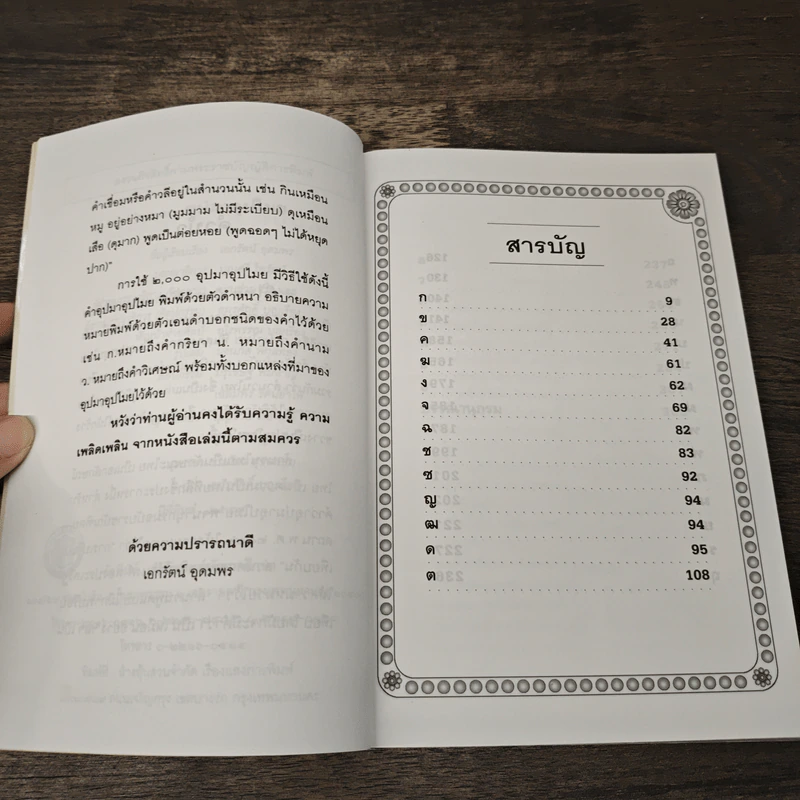 คำเชื่อมหรือคำวลีอยู่ในสำนวนนั้น เช่น กินเหมือน
หมู อยู่อย่างหมา (มูมมาม ไม่มีระเบียบ) ดุเหมือน
เสือ (ดุมาก) พูดเป็นต่อยหอย (พูดฉอดๆ ไม่ได้หยุด
ปาก)"
การใช้ ๒,๐๐๐ อุปมาอุปไมย มีวิธีใช้ดังนี้
คำอุปมาอุปไมย พิมพ์ด้วยตัวดำหนา อธิบายความ
หมายพิมพ์ด้วยตัวเอนดำบอกชนิดของคำไว้ด้วย
เช่น ก.หมายถึงคำกริยา น. หมายถึงคำนาม
ว. หมายถึงคำวิเศษณ์ พร้อมทั้งบอกแหล่งที่มาของ
อุปมาอุปไมยไว้ด้วย
หวังว่าท่านผู้อ่านคงได้รับความรู้ ความ
เพลิดเพลิน จากหนังสือเล่มนี้ตามสมควร
ด้วยความปรารถนาดี
เอกรัตน์ อุดมพร
สารบัญ
ก 9
ข 28
ค 41
ฆ 61
ง 62
จ 69
ฉ 82
ช 83
ซ 92
ญ 94
ฒ 94
ด 95
ต 108